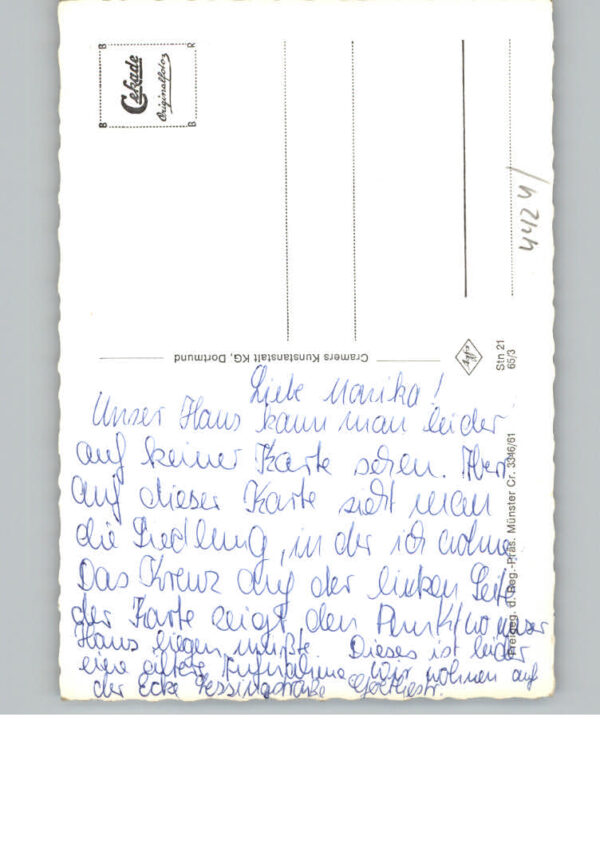 B R
Cekade
Originalfoto
B B
4424/
Cramers Kunstanstalt KG, Dortmund
Stn 21
65/3
Freigeg. d. Reg.-Präs. Münster Cr. 3346/61
Liebe Marika!
Unser Haus kann man leider
auf keiner Karte sehen. Aber
auf dieser Karte sieht man
die Siedlung, in der ich wohne.
Das Kreuz auf der linken Seite
der Karte zeigt den Punkt, wo unser
Haus liegen müßte. Dieses ist leider
eine ältere Aufnahme. Wir wohnen auf
der Ecke Lessingstraße Goethestr.